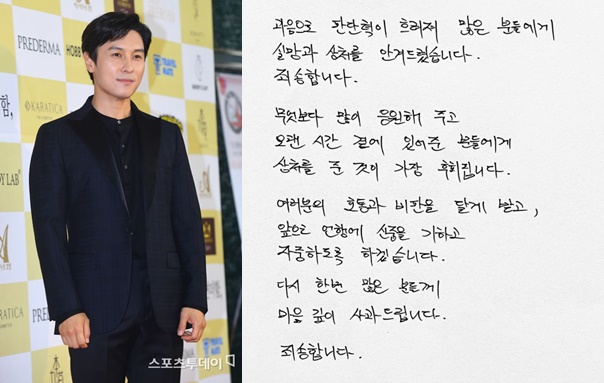 PREDERMA
HOBB
TRAVEL MATE
함,
KARATICA
DY LAB
KARATICA
PREDERMA
스포츠투데이
과음으로 판단력이 흐려져 많은 분들에게
실망과 상처를 안겨드렸습니다.
죄송합니다.
무엇보다 많이 응원해 주고
오랜 시간 곁에 있어준 분들에게
상처를 준 것이 가장 후회됩니다.
여러분의 호통과 비판을 달게 받고,
앞으로 언행에 신중을 기하고
자중하도록 하겠습니다.
다시 한번 많은 분들께
마음 깊이 사과드립니다.
죄송합니다.